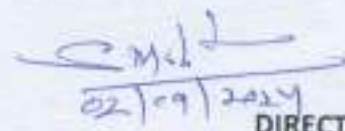 02/09/2024
DIRECT